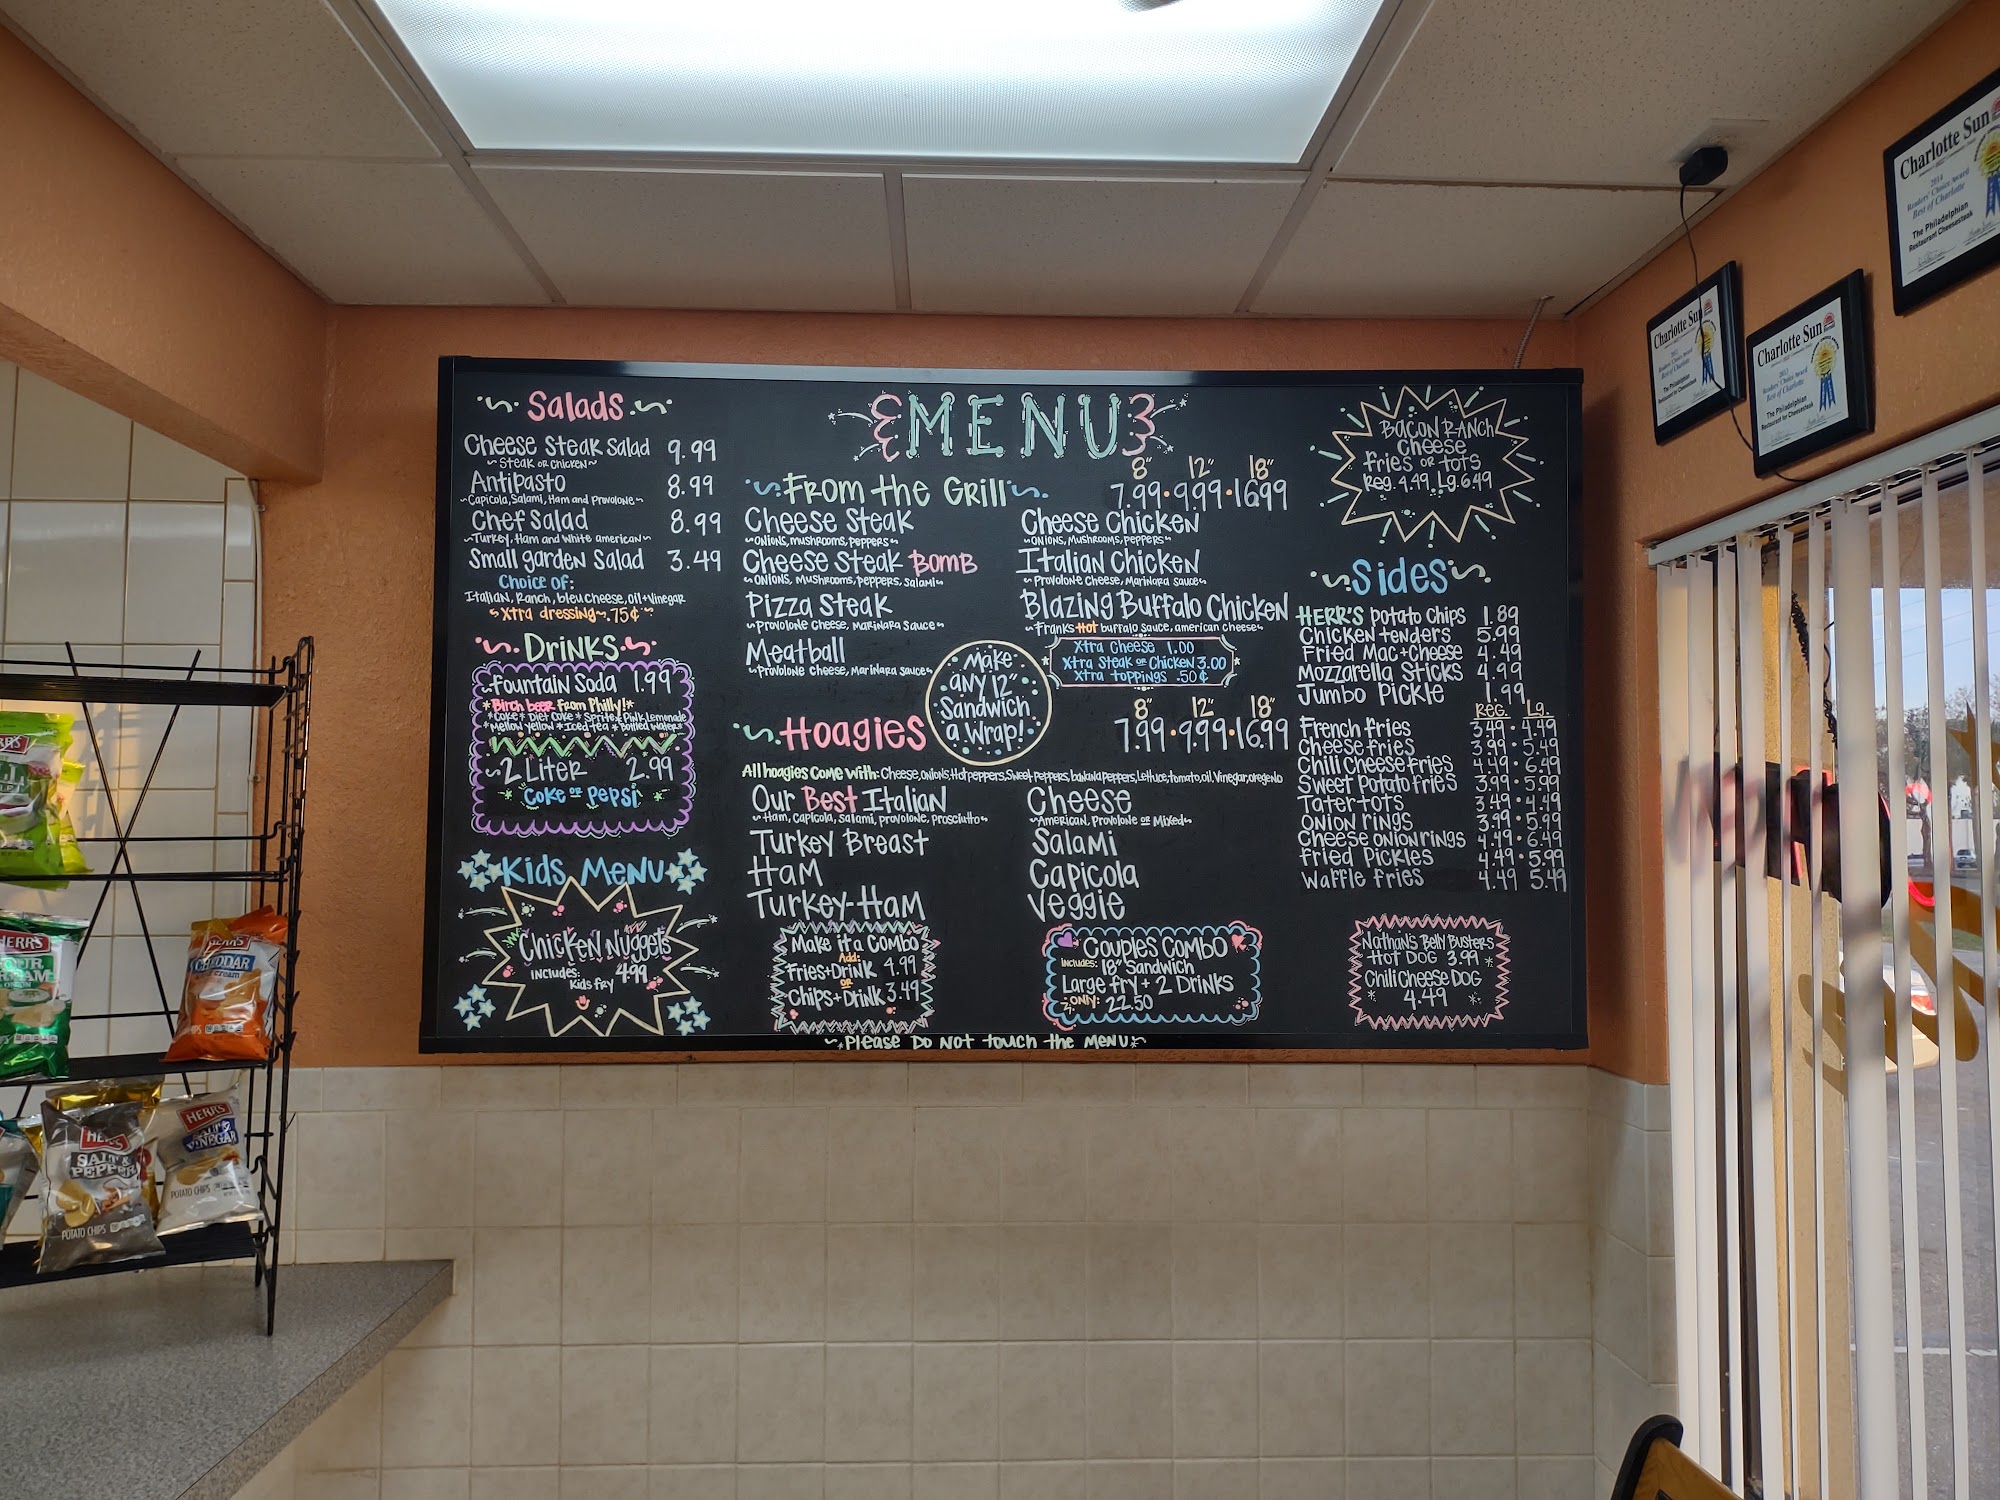 Salads
Cheese Steak Salad 9.99
Steak or Chicken
Antipasto 8.99
Capicola, Salami, Ham and Provolone
Chef Salad 8.99
Turkey, Ham and White american
Small garden Salad 3.49
Choice of:
Italian, Ranch, bleu cheese, oil+vinegar
Xtra dressing .75¢
Drinks
Fountain Soda 1.99
*Birch beer from Philly!*
*Coke* Diet Coke* Sprite* Pink Lemonade
Mellow Yellow* Iced tea* Bottled Water*
2 Liter 2.99
Coke or Pepsi
Kids Menu
Chicken Nuggets
includes: 4.99
Kids fry
MENU
From the Grill
8" 12" 18"
7.99 • 9.99 • 16.99
Cheese Steak
Onions, mushrooms, peppers
Cheese Steak Bomb
Onions, Mushrooms, peppers, Salami
Pizza Steak
Provolone Cheese, Marinara Sauce
Meatball
Provolone Cheese, Marinara Sauce
Cheese Chicken
Onions, Mushrooms, Peppers
Italian Chicken
Provolone Cheese, Marinara sauce
Blazing Buffalo Chicken
Franks Hot buffalo Sauce, american cheese
Xtra Cheese 1.00
Xtra Steak or Chicken 3.00
Xtra toppings .50¢
Make
any 12"
Sandwich
a Wrap!
Hoagies
8" 12" 18"
7.99 • 9.99 • 16.99
All hoagies Come With: Cheese, onions, Hot peppers, Sweet peppers, banana peppers, Lettuce, tomato, oil, Vinegar, oregeno
Our Best Italian
Ham, Capicola, Salami, provolone, prosciutto
Turkey Breast
Ham
Turkey-Ham
Cheese
American, Provolone or Mixed
Salami
Capicola
Veggie
Make it a Combo
Add:
Fries+Drink 4.99
or
Chips+Drink 3.49
Couples Combo
includes: 18" Sandwich
Large fry + 2 Drinks
only: 22.50
Bacon Ranch
Cheese
fries or tots
Reg. 4.49 Lg. 6.49
Sides
HERR'S Potato Chips 1.89
Chicken tenders 5.99
Fried Mac+Cheese 4.49
Mozzarella Sticks 4.99
Jumbo Pickle 1.99
Reg. Lg.
French fries 3.49 • 4.49
Cheese fries 3.99 • 5.49
Chili Cheese fries 4.49 • 6.49
Sweet Potato fries 3.99 • 5.99
Tater tots 3.49 • 4.49
Onion rings 3.99 • 5.99
Cheese onion rings 4.49 • 6.49
Fried Pickles 4.49 • 5.99
Waffle fries 4.49 5.49
Nathan's Belly Busters
Hot Dog 3.99 *
Chili Cheese Dog
* 4.49 *
Please Do Not touch the Menu
Charlotte Sun
2014
Readers' Choice Award
Best of Charlotte
The Philadelphian
Restaurant Cheesesteak
Charlotte Sun
Readers' Choice Award
Best of Charlotte
The Philadelphian
Restaurant for Cheesesteak
Charlotte Sun
2013
Readers' Choice Award
Best of Charlotte
The Philadelphian
Restaurant for Cheesesteak
HERR'S
CHEDDAR
HERR'S
SALT &
PEPPER
POTATO CHIPS
HERR'S
SALT &
VINEGAR
POTATO CHIPS